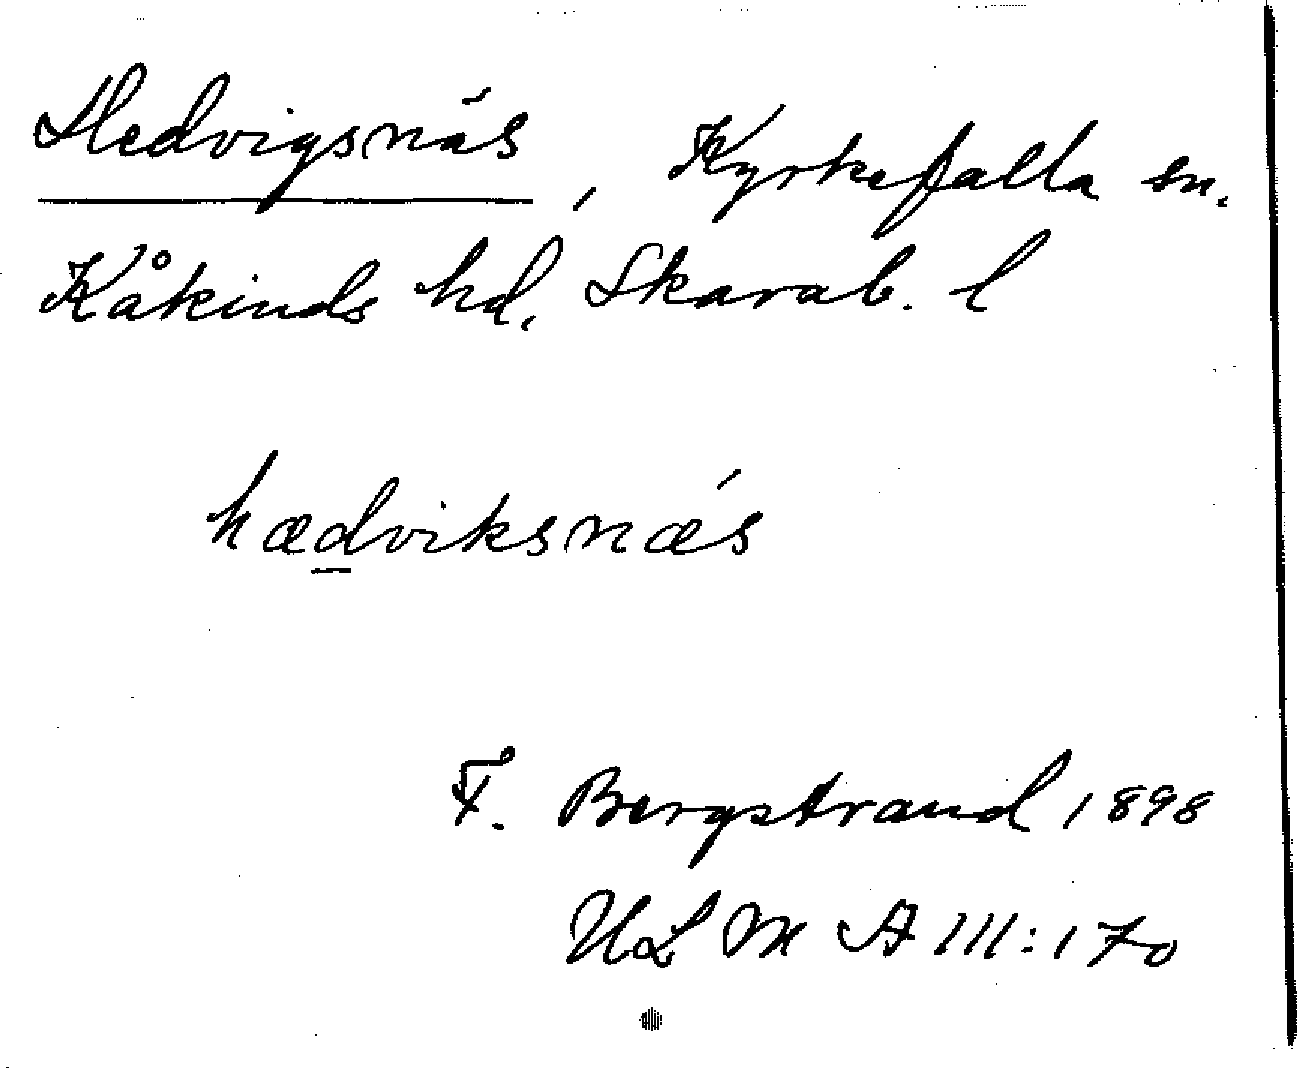 Hedvigsnäs, Kyrkefalla sn.
Kåkinds hd, Skarab. l
hædviksnæs
F. Bergstrand 1898
ULMA III:170